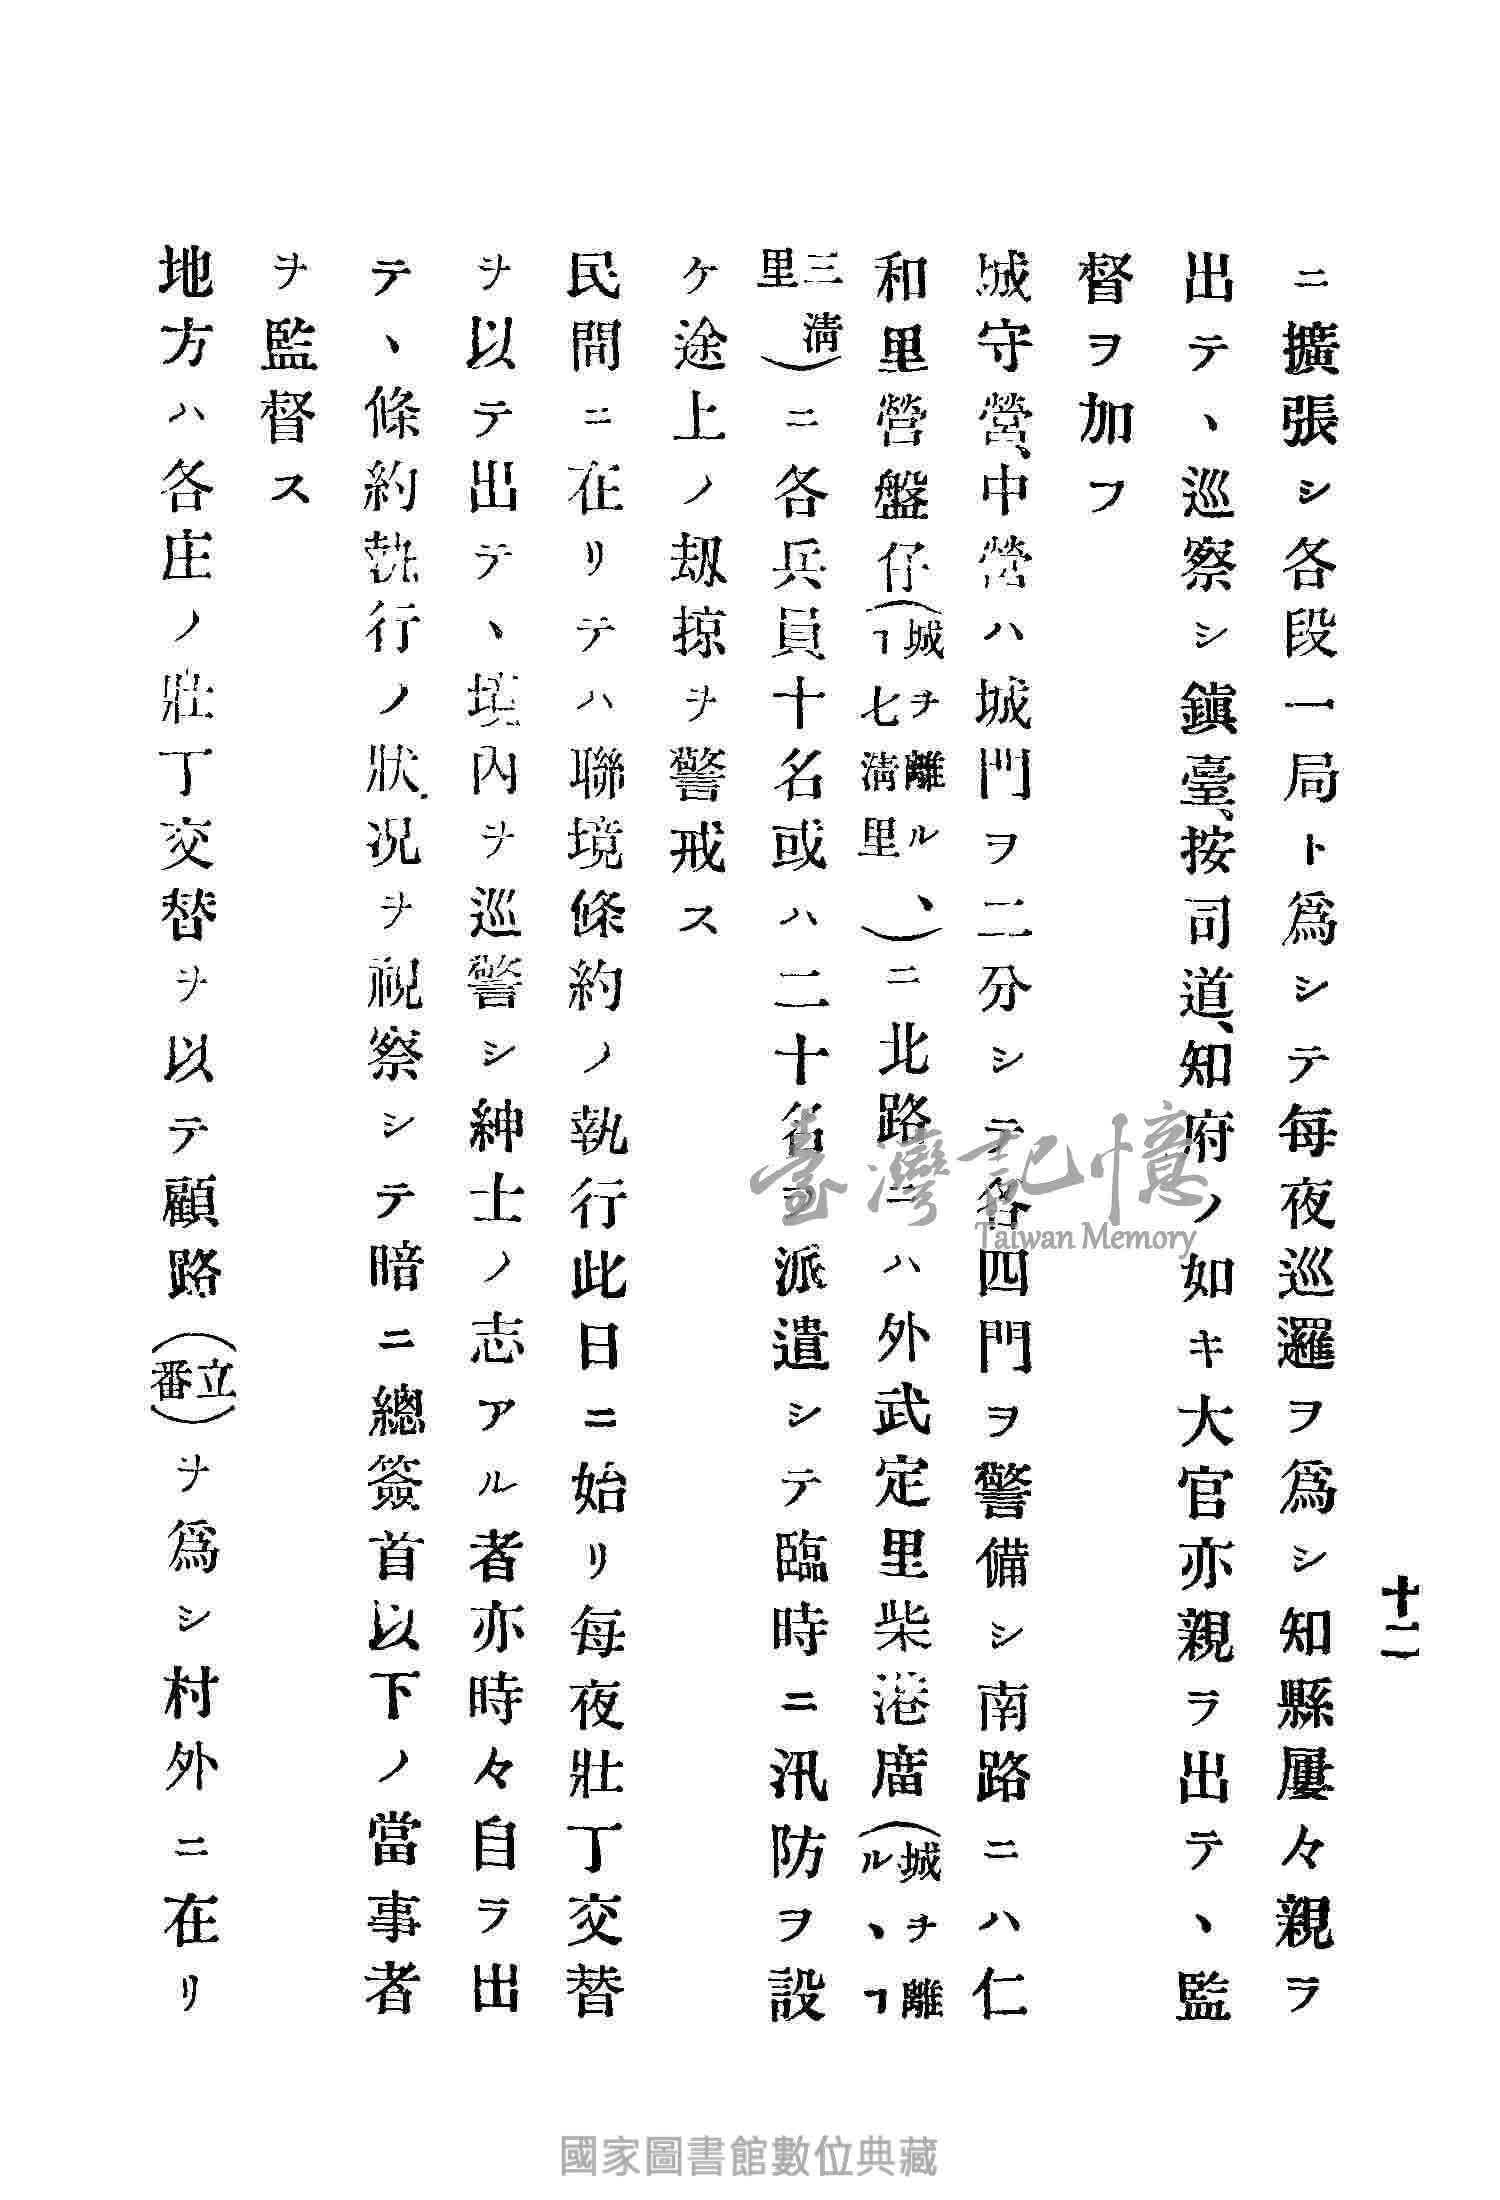 十二
ニ擴張シ各段一局ト爲シテ每夜巡邏ヲ爲シ知縣屢々親ラ
出テ、巡察シ鎭臺、按司道、知府ノ如キ大官亦親ラ出テ、監
督ヲ加フ
城守營、中營ハ城門ヲ二分シテ各四門ヲ警備シ南路ニハ仁
和里營盤仔(城ヲ離ル、ヿ七淸里)ニ北路ニハ外武定里柴港庴(城ヲ離ル、ヿ
三淸里)ニ各兵員十名或ハ二十名ヲ派遣シテ臨時ニ汛防ヲ設
ケ途上ノ刼掠ヲ警戒ス
民間ニ在リテハ聯境條約ノ執行此日ニ始リ每夜壯丁交替
ヲ以テ出テ、境內ヲ巡警シ紳士ノ志アル者亦時々自ラ出
テ、條約執行ノ狀况ヲ視察シテ暗ニ總簽首以下ノ當事者
ヲ監督ス
地方ハ各庄ノ壯丁交替ヲ以テ顧路(立番)ヲ爲シ村外ニ在リ
臺灣記憶
Taiwan Memory
國家圖書館數位典藏